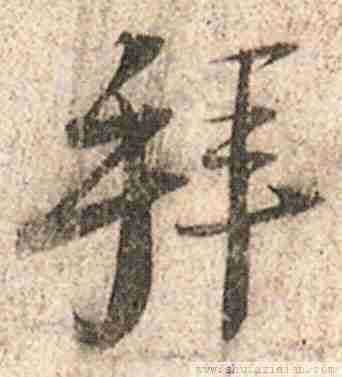 拜
www.shufazidian.com